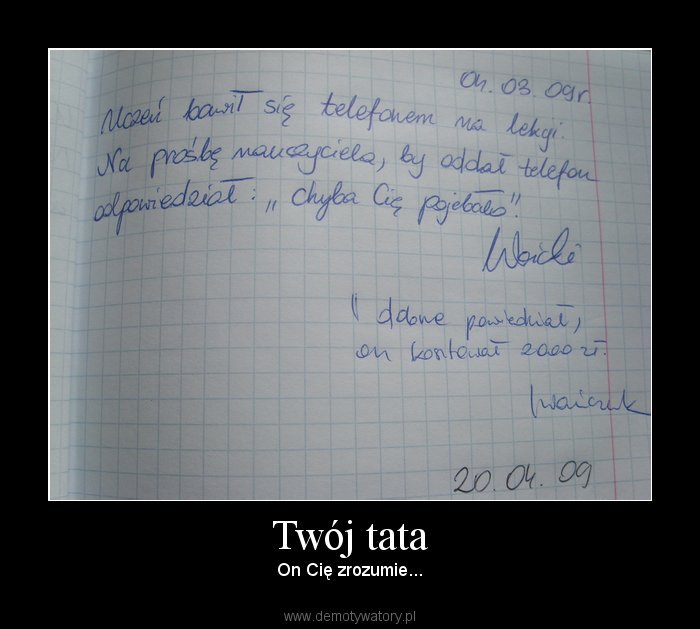 04.03.09r.
Uczeń bawił się telefonem na lekcji.
Na prośbę nauczyciela, by oddał telefon
odpowiedział: „Chyba Cię pojebało".
I dobrze powiedział,
on kosztował 2000 zł.
20.04.09
Twój tata
On Cię zrozumie...
www.demotywatory.pl